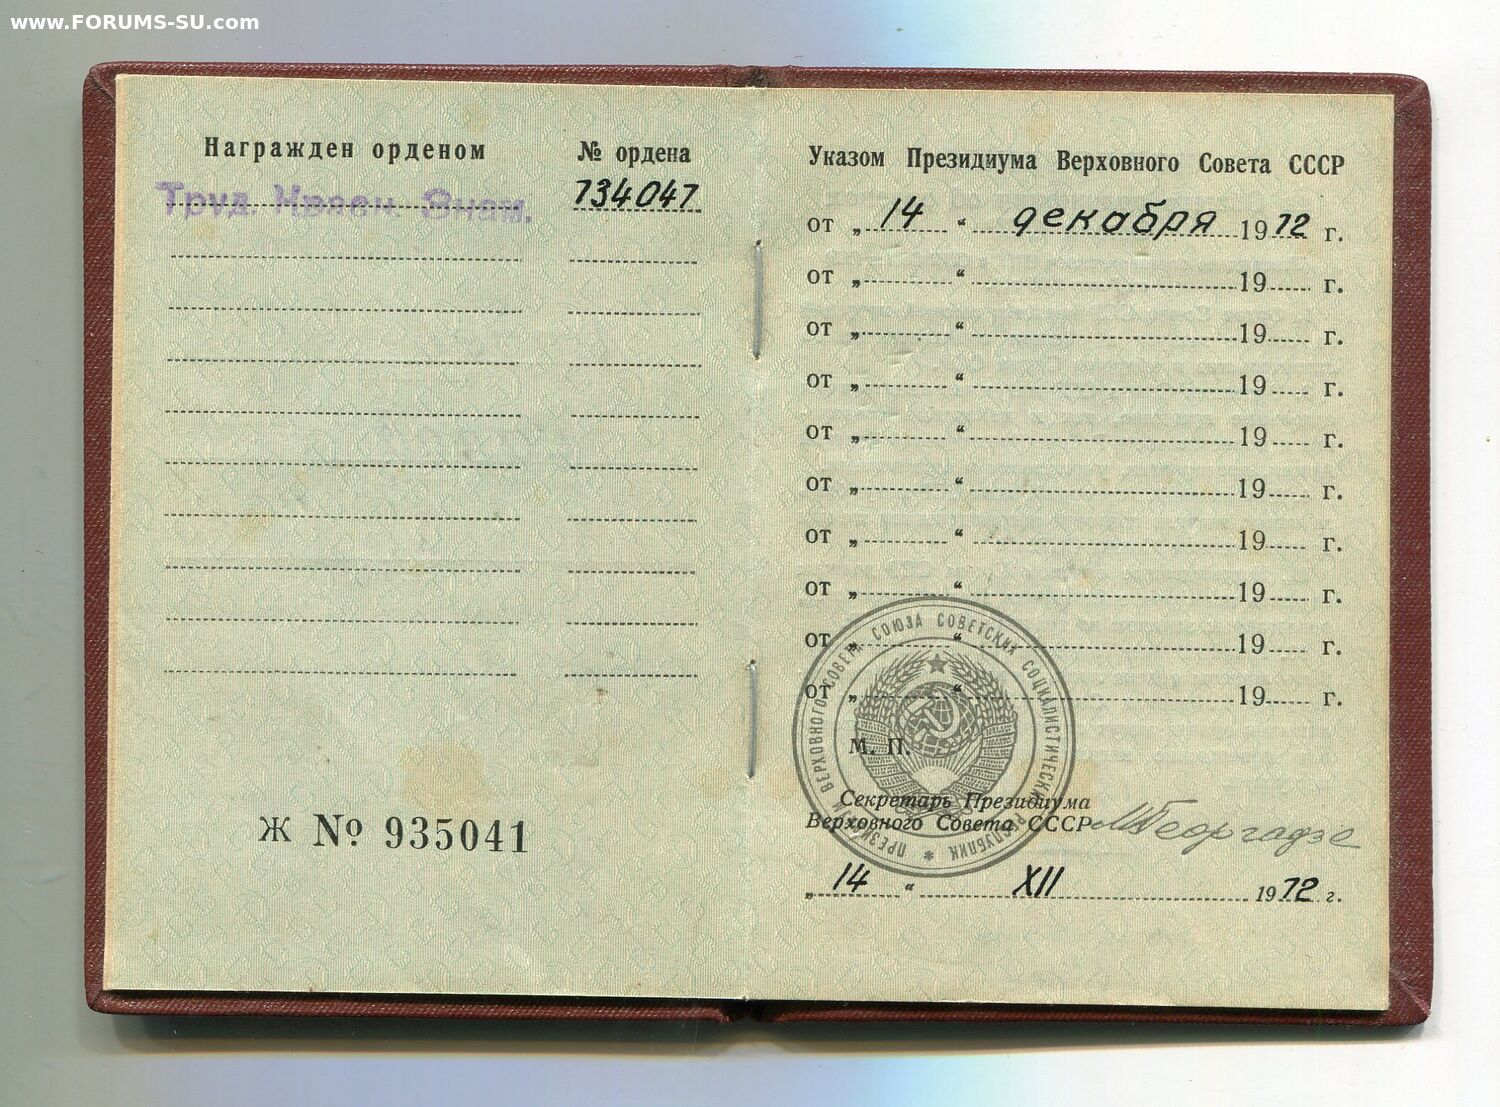 www.FORUMS-SU.com
Награжден орденом
№ ордена
Труд. Красн. Знам.
734047
Ж № 935041
Указом Президиума Верховного Совета СССР
от „ 14 “ декабря 1972 г.
от „ “ 19 г.
от „ “ 19 г.
от „ “ 19 г.
от „ “ 19 г.
от „ “ 19 г.
от „ “ 19 г.
от „ “ 19 г.
от „ “ 19 г.
от „ “ 19 г.
ПРЕЗИДИУМ ВЕРХОВНОГО СОВЕТА СОЮЗА СОВЕТСКИХ СОЦИАЛИСТИЧЕСКИХ РЕСПУБЛИК
М. П.
Секретарь Президиума
Верховного Совета СССР МГеоргадзе
„ 14 “ XII 1972 г.